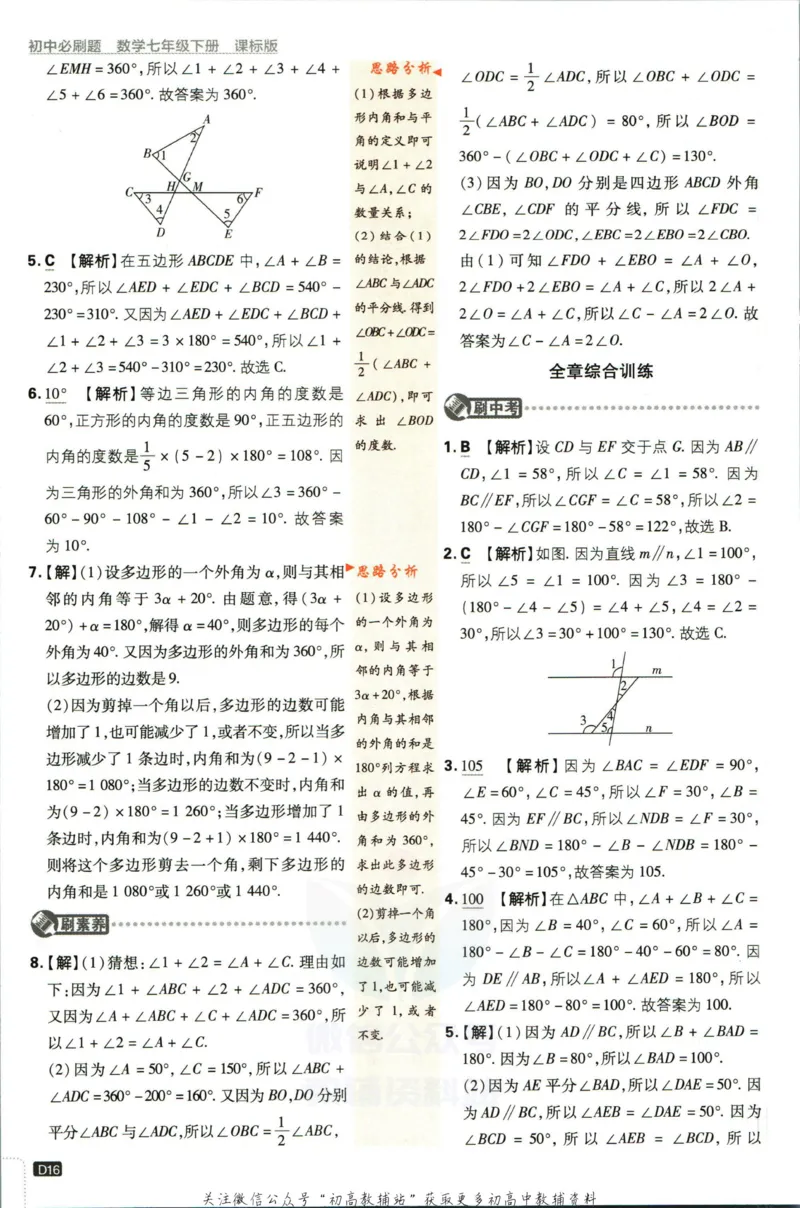 初中必刷题 数学七年级下册 课标版
∠EMH=360°,所以∠1+∠2+∠3+∠4+
∠5+∠6=360°.故答案为360°.
A
2
B
1
G
H
M
C
3
6
F
4
5
D
E
5.C 【解析】在五边形ABCDE中,∠A+∠B=
230°,所以∠AED+∠EDC+∠BCD=540°-
230°=310°.又因为∠AED+∠EDC+∠BCD+
∠1+∠2+∠3=3×180°=540°,所以∠1+
∠2+∠3=540°-310°=230°.故选C.
6.10° 【解析】等边三角形的内角的度数是
60°,正方形的内角的度数是90°,正五边形的
内角的度数是1/5×(5-2)×180°=108°.因
为三角形的外角和为360°,所以∠3=360°-
60°-90°-108°-∠1-∠2=10°.故答案
为10°.
7.【解】(1)设多边形的一个外角为α,则与其相
邻的内角等于3α+20°.由题意,得(3α+
20°)+α=180°,解得α=40°,则多边形的每个
外角为40°.又因为多边形的外角和为360°,所
以多边形的边数是9.
(2)因为剪掉一个角以后,多边形的边数可能
增加了1,也可能减少了1,或者不变,所以当多
边形减少了1条边时,内角和为(9-2-1)×
180°=1 080°;当多边形的边数不变时,内角和
为(9-2)×180°=1 260°;当多边形增加了1
条边时,内角和为(9-2+1)×180°=1 440°.
则将这个多边形剪去一个角,剩下多边形的
内角和是1 080°或1 260°或1 440°.
刷素养
8.【解】(1)猜想:∠1+∠2=∠A+∠C.理由如
下:因为∠1+∠ABC+∠2+∠ADC=360°,
又因为∠A+∠ABC+∠C+∠ADC=360°,所
以∠1+∠2=∠A+∠C.
(2)因为∠A=50°,∠C=150°,所以∠ABC+
∠ADC=360°-200°=160°.又因为BO,DO分别
平分∠ABC与∠ADC,所以∠OBC=1/2∠ABC,
思路分析
(1)根据多边
形内角和与平
角的定义即可
说明∠1+∠2
与∠A,∠C的
数量关系;
(2)结合(1)
的结论,根据
∠ABC与∠ADC
的平分线.得到
∠OBC+∠ODC=
1/2(∠ABC+
∠ADC),即可
求出∠BOD
的度数.
思路分析
(1)设多边形
的一个外角为
α,则与其相
邻的内角等于
3α+20°,根据
内角与其相邻
的外角的和是
180°列方程求
出α的值,再
由多边形的外
角和为360°,
求出此多边形
的边数即可.
(2)剪掉一个角
以后,多边形的
边数可能增加
了1,也可能减
少了1,或者
不变.
∠ODC=1/2∠ADC,所以∠OBC+∠ODC=
1/2(∠ABC+∠ADC)=80°,所以∠BOD=
360°-(∠OBC+∠ODC+∠C)=130°.
(3)因为BO,DO分别是四边形ABCD外角
∠CBE,∠CDF的平分线,所以∠FDC=
2∠FDO=2∠ODC,∠EBC=2∠EBO=2∠CBO.
由(1)可知∠FDO+∠EBO=∠A+∠O,
2∠FDO+2∠EBO=∠A+∠C,所以2∠A+
2∠O=∠A+∠C,所以∠C-∠A=2∠O.故
答案为∠C-∠A=2∠O.
全章综合训练
刷中考
1.B 【解析】设CD与EF交于点G.因为AB∥
CD,∠1=58°,所以∠C=∠1=58°.因为
BC∥EF,所以∠CGF=∠C=58°,所以∠2=
180°-∠CGF=180°-58°=122°,故选B.
2.C 【解析】如图.因为直线m∥n,∠1=100°,
所以∠5=∠1=100°.因为∠3=180°-
(180°-∠4-∠5)=∠4+∠5,∠4=∠2=
30°,所以∠3=30°+100°=130°.故选C.
1
m
2
3
4
5
n
3.105 【解析】因为∠BAC=∠EDF=90°,
∠E=60°,∠C=45°,所以∠F=30°,∠B=
45°.因为EF∥BC,所以∠NDB=∠F=30°,
所以∠BND=180°-∠B-∠NDB=180°-
45°-30°=105°,故答案为105.
4.100 【解析】在△ABC中,∠A+∠B+∠C=
180°,因为∠B=40°,∠C=60°,所以∠A=
180°-∠B-∠C=180°-40°-60°=80°.因
为DE∥AB,所以∠A+∠AED=180°,所以
∠AED=180°-80°=100°.故答案为100.
5.【解】(1)因为AD∥BC,所以∠B+∠BAD=
180°.因为∠B=80°,所以∠BAD=100°.
(2)因为AE平分∠BAD,所以∠DAE=50°.因
为AD∥BC,所以∠AEB=∠DAE=50°.因为
∠BCD=50°,所以∠AEB=∠BCD,所以
D16
关注微信公众号“初高教辅站”获取更多初高中教辅资料